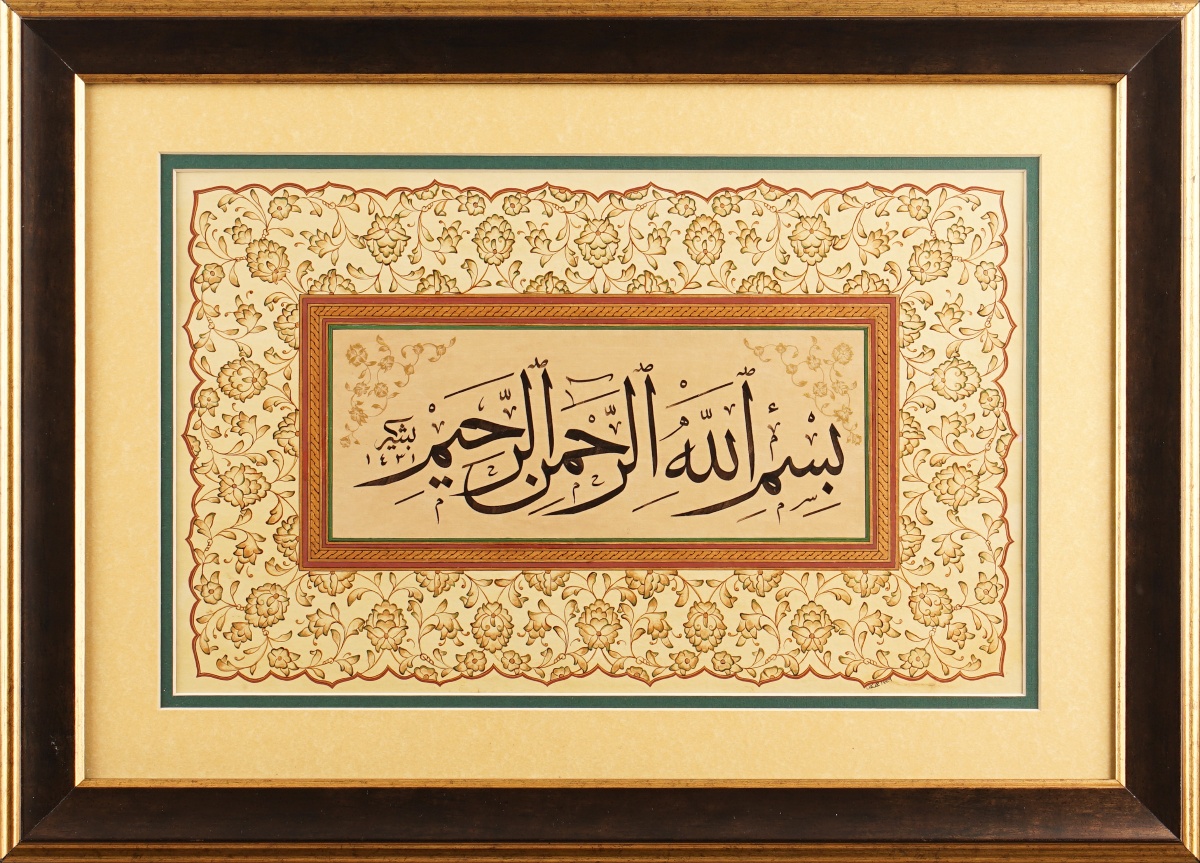 بِسْمِ اللّٰهِ الرَّحْمٰنِ الرَّحِيْمِ
بشير
١٤٣١